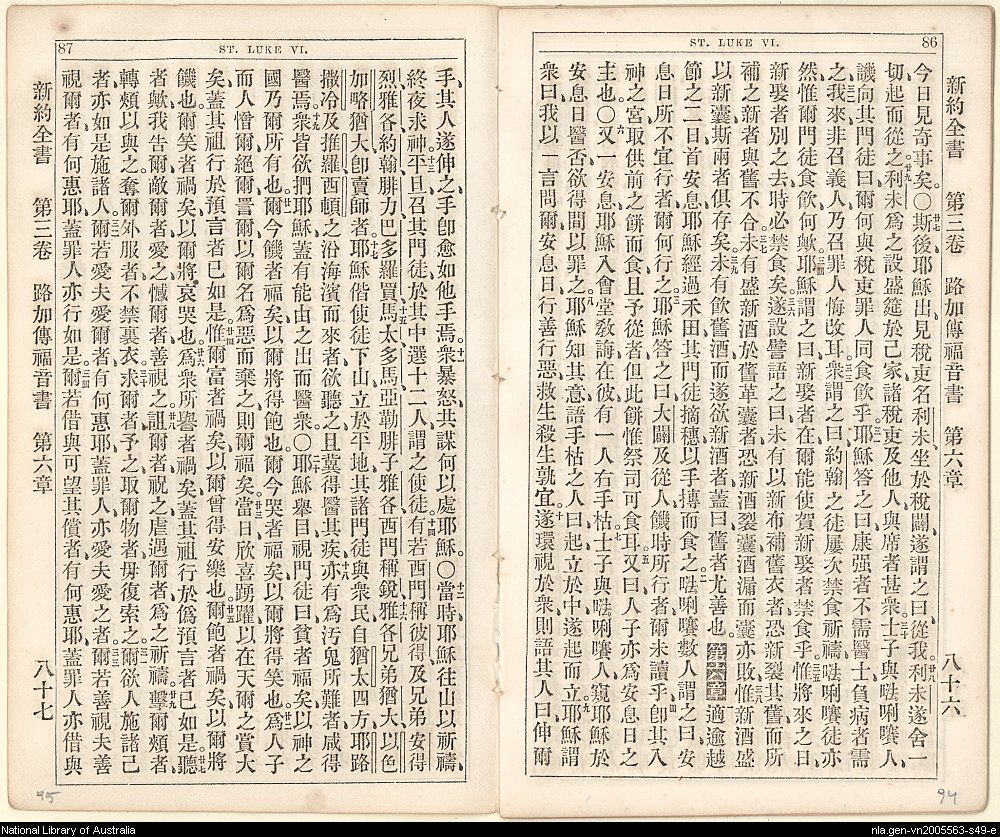 86
ST. LUKE VI.
新約全書 第三卷 路加傳福音書 第六章 八十六
今日見奇事矣。○斯後、耶穌出、見稅吏名利未、坐於稅關、遂謂之曰、從我、利未遂舍一
切、起而從之。利未爲之設盛筵於己家、諸稅吏及他人與席者甚衆。士子與𠵽唎㘔人、
譏向其門徒曰、爾何與稅吏罪人同食飲乎。耶穌答之曰、康强者不需醫士、負病者需
之、我來非召義人、乃召罪人悔改耳。衆謂之曰、約翰之徒、屢次禁食祈禱、𠵽唎㘔徒亦
然、惟爾門徒食飲何歟。耶穌謂之曰、新娶者在、爾能使賀新娶者禁食乎。惟將來之日、
新娶者別之去、時必禁食矣。遂設譬語之曰、未有以新布補舊衣者、恐新裂其舊、而所
補之新者與舊不合。未有盛新酒於舊革囊者、恐新酒裂囊、酒漏而囊亦敗。惟新酒盛
以新囊、斯兩者俱存矣。未有飲舊酒、而遂欲新酒者、蓋曰舊者尤善也。 第六章 適逾越
節之二日首安息、耶穌經過禾田、其門徒摘穗、以手摶而食之。𠵽唎㘔數人謂之曰、安
息日所不宜行者、爾何行之。耶穌答之曰、大闢及從人饑時所行者、爾未讀乎。卽其入
神之宮、取供前之餅而食、且予從者、但此餅惟祭司可食耳。又曰、人子亦爲安息日之
主也。○又一安息、耶穌入會堂敎誨、在彼有一人右手枯。士子與𠵽唎㘔人、窺耶穌於
安息日醫否、欲得間以罪之。耶穌知其意、語手枯之人曰、起、立於中、遂起而立。耶穌謂
衆曰、我以一言問爾、安息日行善行惡、救生殺生、孰宜。遂環視於衆、則語其人曰、伸爾
94
87
ST. LUKE VI.
手、其人遂伸之、手卽愈如他手焉。衆暴怒、共謀何以處耶穌。○當時、耶穌往山以祈禱、
終夜求神。平旦、召其門徒、於其中選十二人、謂之使徒。有若西門稱彼得、及兄弟安得
烈、雅各、約翰、腓力、巴多羅買、馬太、多馬、亞勒腓子雅各、西門稱銳、雅各兄弟猶大、以色
加畧猶大、卽賣師者。耶穌偕使徒下山、立於平地、其諸門徒與衆民、自猶太四方、耶路
撒冷、及推羅西頓之沿海濱而來者、欲聽之、且冀得醫其疾。亦有爲汚鬼所難者、咸得
醫焉。衆皆欲捫耶穌、蓋有能由之出而醫衆。○耶穌舉目視門徒曰、貧者福矣、以神之
國乃爾所有也。爾今饑者福矣、以爾將得飽也、爾今哭者福矣、以爾將得笑也。爲人子
而人憎爾、絕爾、詈爾、以爾名爲惡而棄之、則爾福矣。當日欣喜踴躍、以在天爾之賞大
矣、蓋其祖行於預言者已如是。惟爾富者禍矣、以爾曾得安樂也。爾飽者禍矣、以爾將
饑也、爾笑者禍矣、以爾將哀哭也。爲衆所譽者禍矣、蓋其祖行於僞預言者已如是。聽
者歟、我告爾、敵爾者愛之、憾爾者善視之。詛爾者祝之、虐遇爾者爲之祈禱。擊爾頰者、
轉頰以與之、奪爾外服者、不禁裏衣。求爾者予之、取爾物者毋復索之。爾欲人施諸己
者、亦如是施諸人。爾若愛夫愛爾者、有何惠耶、蓋罪人亦愛夫愛之者。爾若善視夫善
視爾者、有何惠耶、蓋罪人亦行如是。爾若借與可望其償者、有何惠耶、蓋罪人亦借與
新約全書 第三卷 路加傳福音書 第六章 八十七
95
National Library of Australia
nla.gen-vn2005563-s49-e